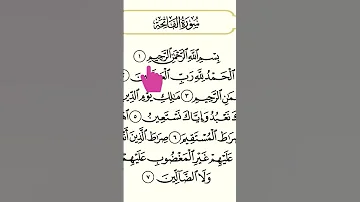 سُورَةُ الْفَاتِحَةِ
بِسْمِ اللَّهِ الرَّحْمَٰنِ الرَّحِيمِ ١
الْحَمْدُ لِلَّهِ رَبِّ
الرَّحِيمِ ٣ مَالِكِ يَوْمِ الدِّينِ
نَعْبُدُ وَإِيَّاكَ نَسْتَعِينُ ٥
الْمُسْتَقِيمَ ٦ صِرَاطَ الَّذِينَ
عَلَيْهِمْ غَيْرِ الْمَغْضُوبِ عَلَيْهِمْ
وَلَا الضَّالِّينَ ٧